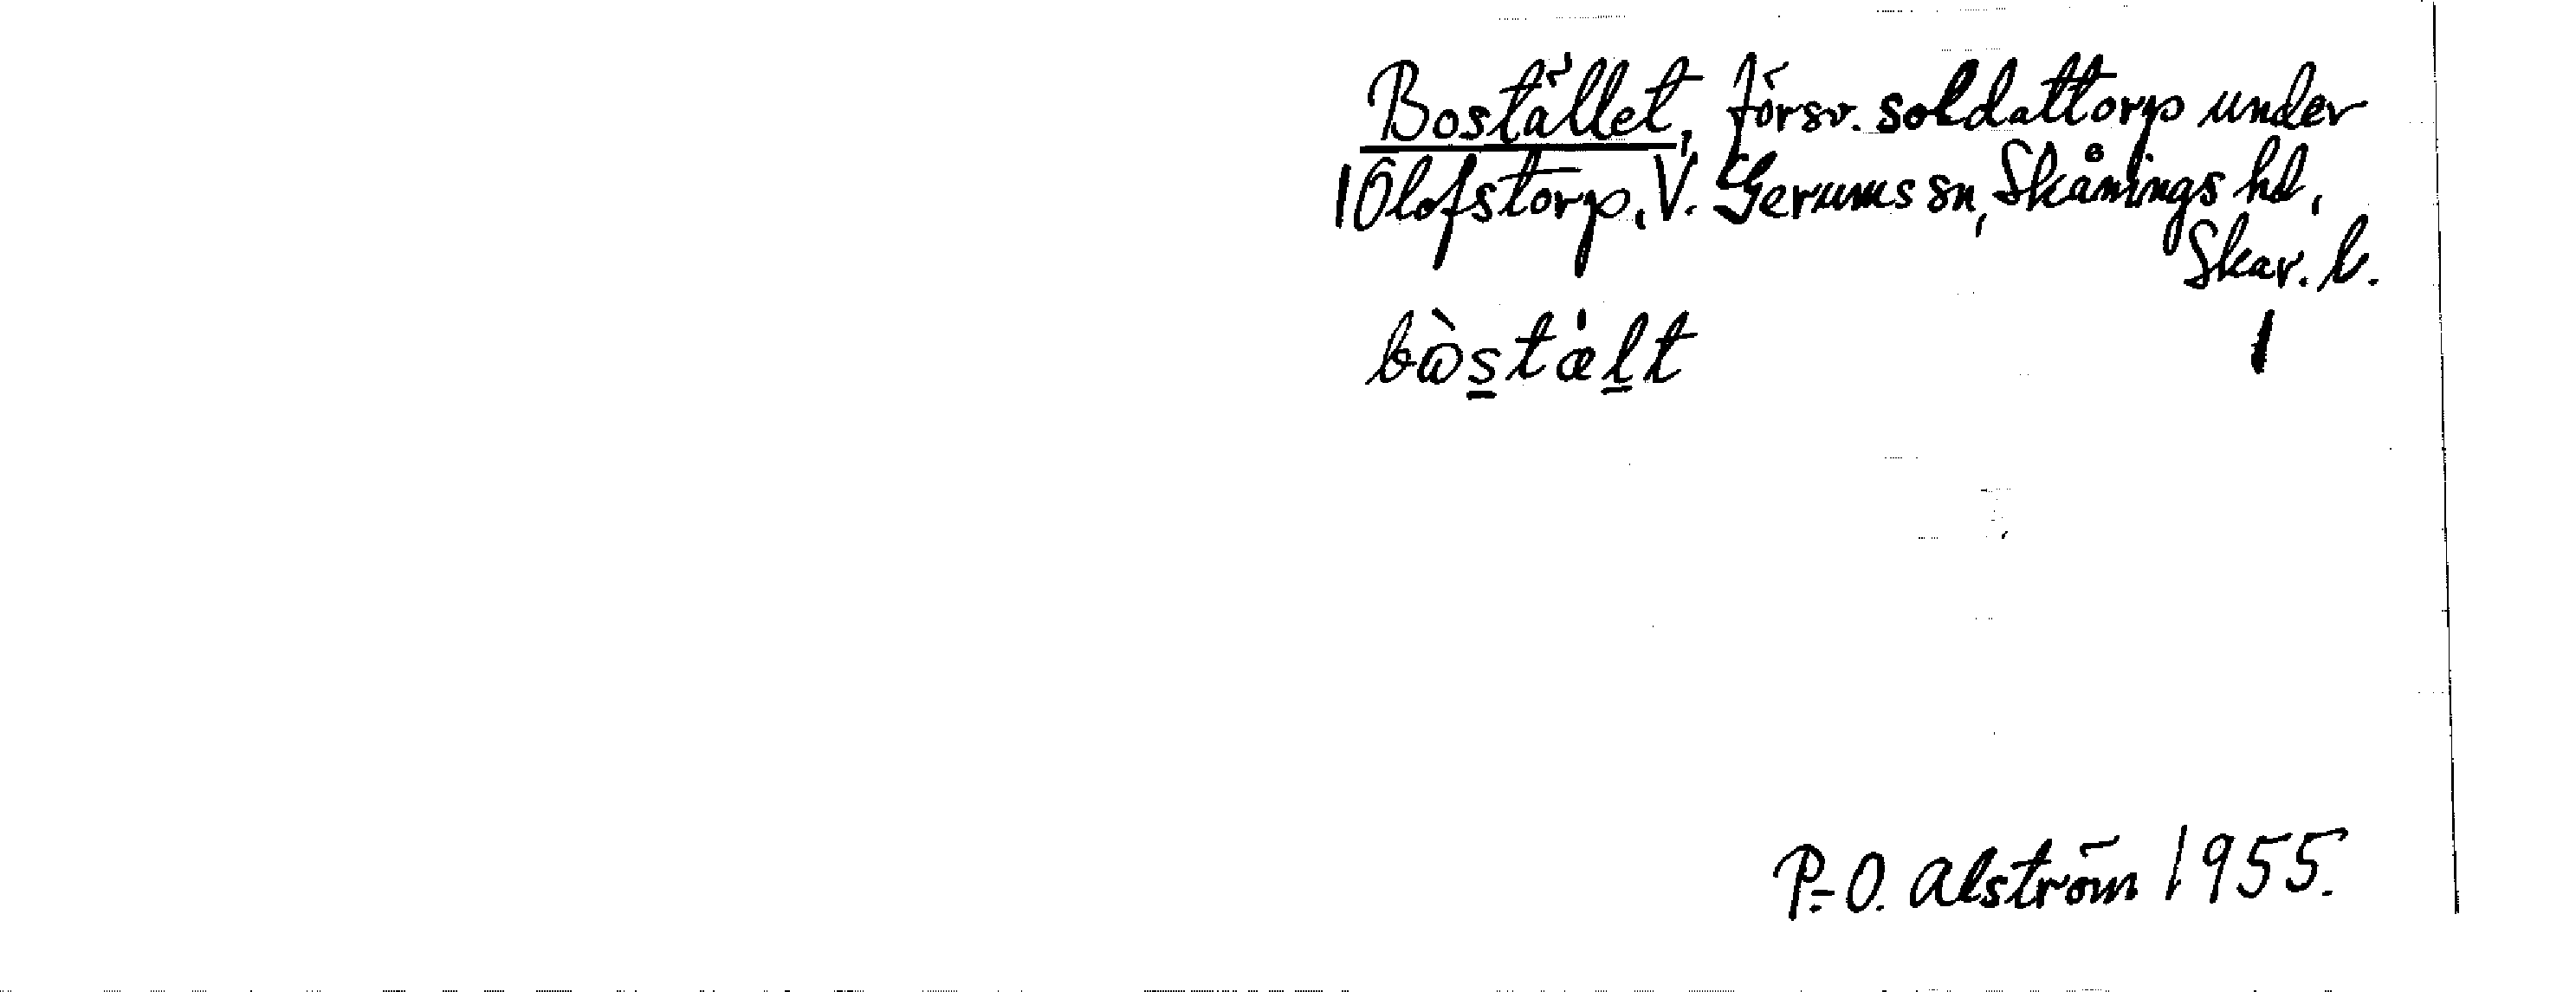 Bostället, försv. soldattorp under
1 Olofstorp, V. Gerums sn, Skånings hd,
Skar. l.
bὼstæ̇lt
1
P.-O. Alström 1955.